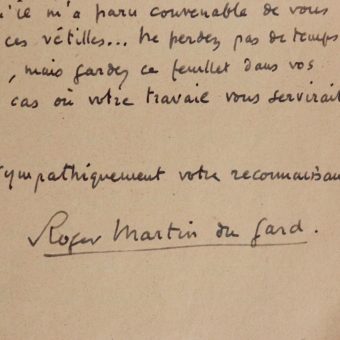 u'il m'a paru convenable de vous
ces vétilles... Ne perdez pas de temps
, mais gardez ce feuillet dans vos
cas où votre travail vous servirait
Sympathiquement votre reconnaissan
Roger Martin du Gard.